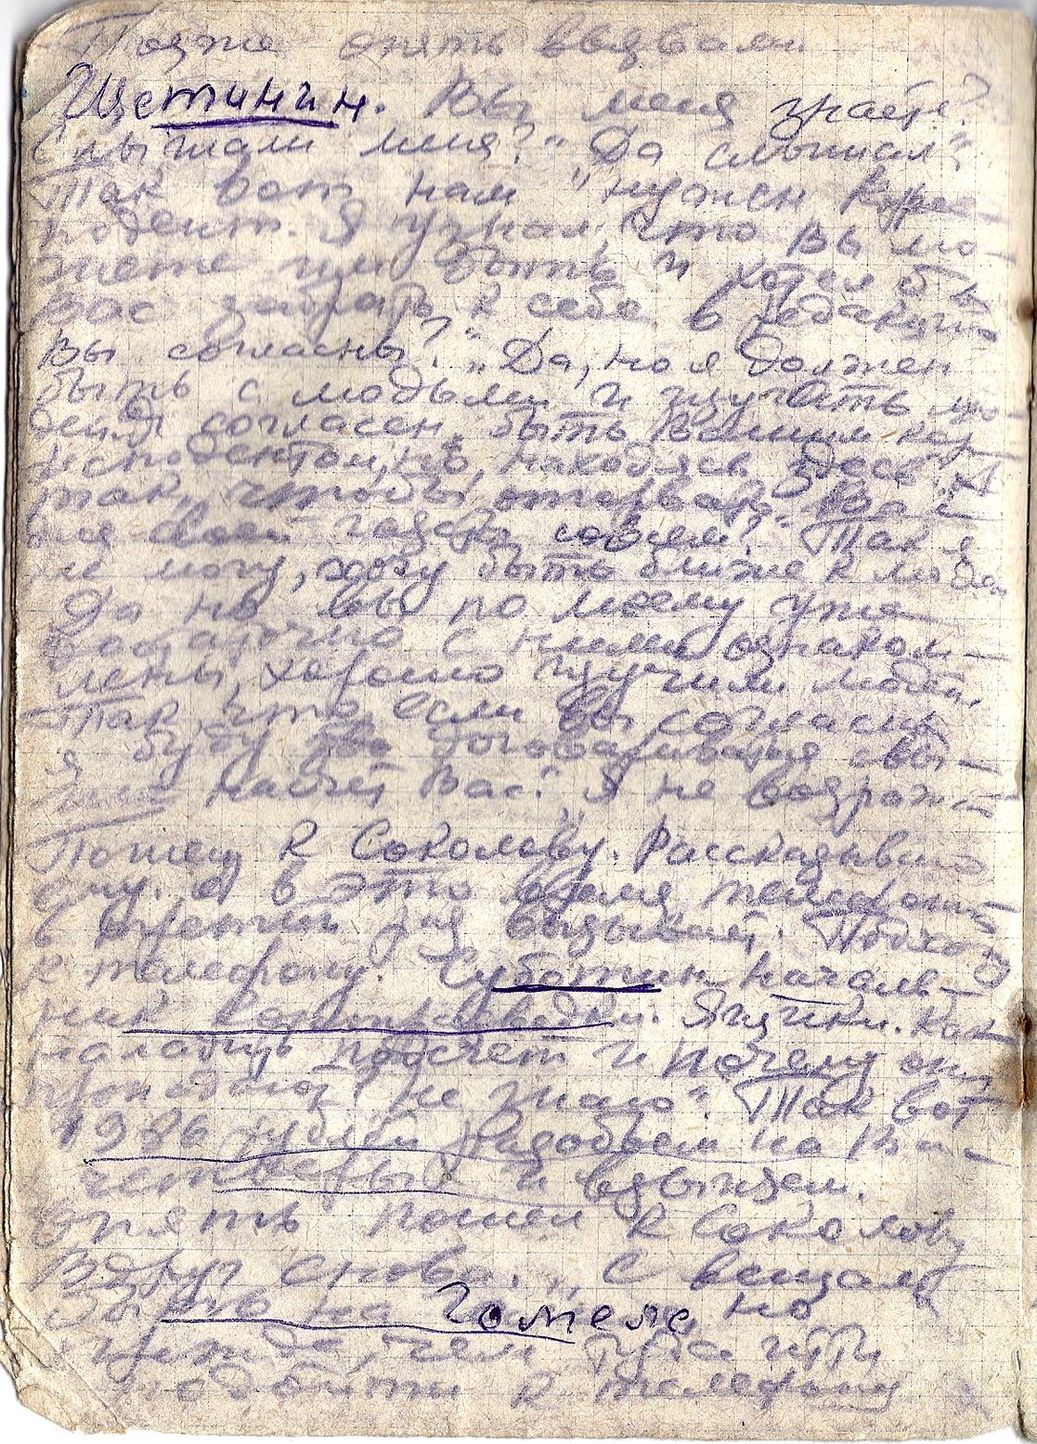 Позже опять вызвали
Щетинин. Вы меня знаете?
Слышали меня?" „Да слышал".
Так вот нам нужен Корес-
подент. Я узнал, что вы мо-
жете им быть и хотел бы
Вас забрать к себе в редакцию
Вы согласны?" „Да, но я должен
быть с людьми и изучать лю-
дей согласен быть Вашим кор-
исподентом, но, находясь здесь
так, чтобы оторвать Вас
газета совсем? Так я
не могу, хочу быть ближе к людям
Да но вы по моему уже
достаточно с ними ознаком-
лены, хорошо изучили людей,
Так, что если вы согласны
я буду договариваться
насчет Вас." „Я не возражаю
Пошел к Соколову. Рассказываю
ему. А в это время телефонист
в третий раз вызывает. Подхожу
к телефону. Суботин началь-
ник контрразведки. Ящики. Как
наладить подсчет и почему он
не знаю". Так вот
1986 рублей разобьем на
четверых и взыщем.
Опять пошел к Соколову
Вдруг снова. „С вещами
на Гомель, но
прежде, чем туда итти
подойти к телефону